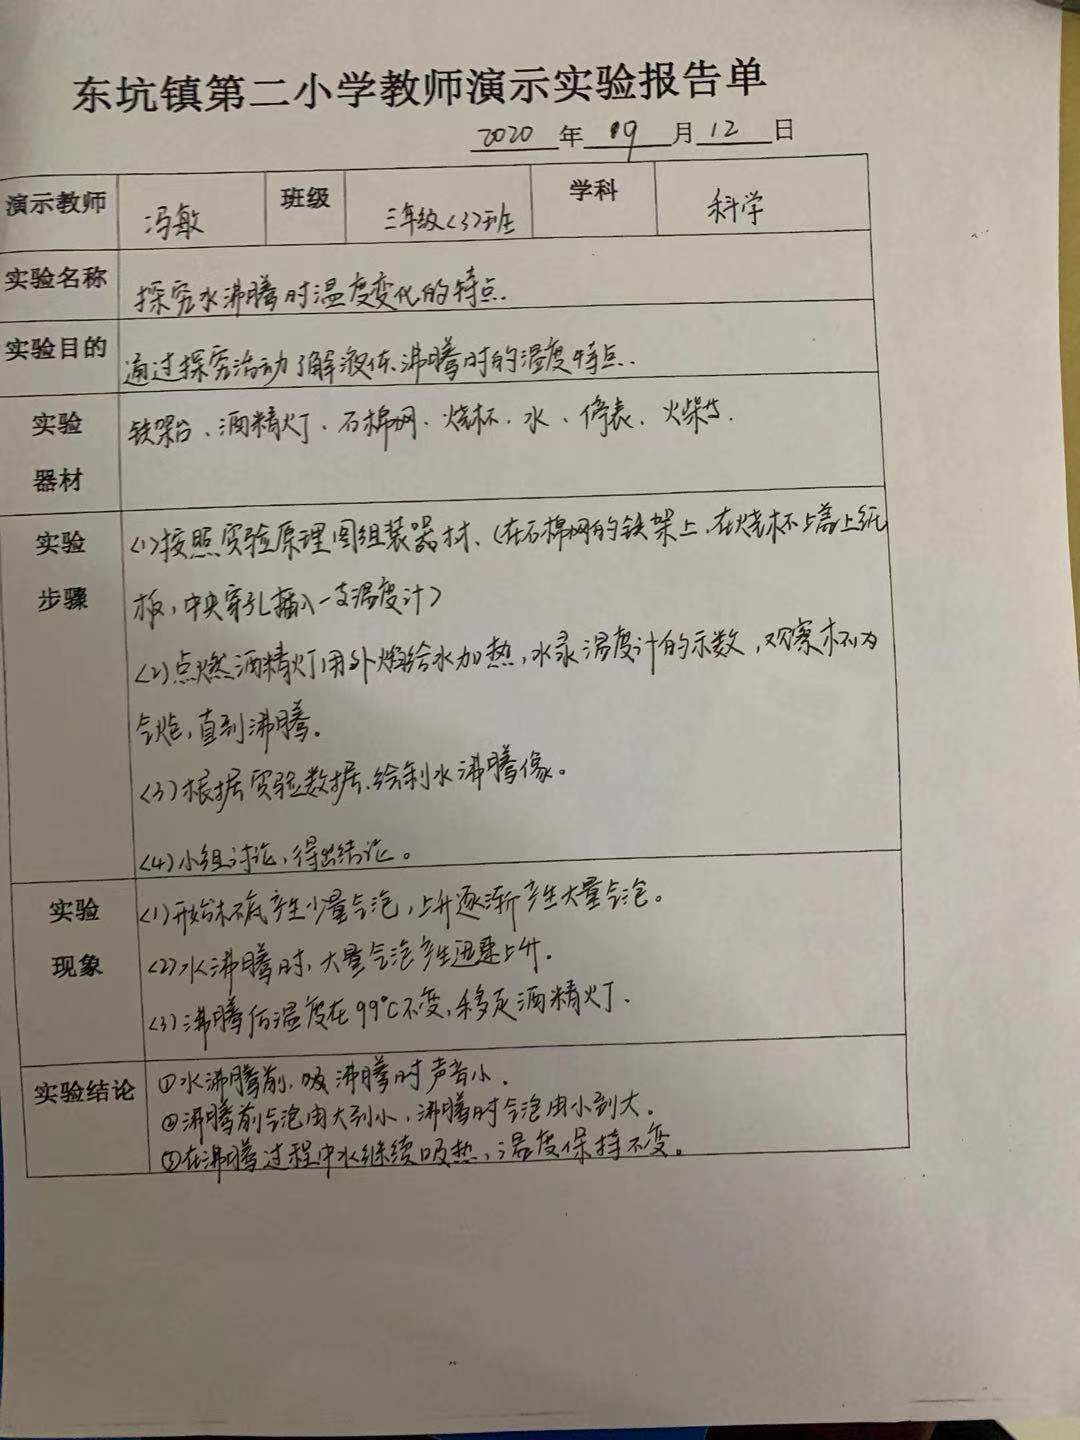 东坑镇第二小学教师演示实验报告单
2020 年 09 月 12 日
演示教师 冯敏 班级 三年级(3)班 学科 科学
实验名称 探究水沸腾时温度变化的特点.
实验目的 通过探究活动了解液体沸腾时的温度特点.
实验 铁架台、酒精灯、石棉网、烧杯、水、停表、火柴
器材
实验 (1)按照实验原理图组装器材、(在石棉网的铁架上、在烧杯上盖上纸
步骤 板,中央穿孔插入一支温度计)
(2)点燃酒精灯用外焰给水加热,水录温度计的示数,观察杯内
气泡,直到沸腾。
(3)根据实验数据、绘制水沸腾像。
(4)小组讨论,得出结论。
实验 (1)开始杯底产生少量气泡,上升逐渐产生大量气泡。
现象 (2)水沸腾时,大量气泡产生迅速上升.
(3)沸腾后温度在99℃不变,移走酒精灯.
实验结论 ①水沸腾前,吸沸腾时声音小.
②沸腾前气泡由大到小,沸腾时气泡由小到大.
③在沸腾过程中水继续吸热,温度保持不变。